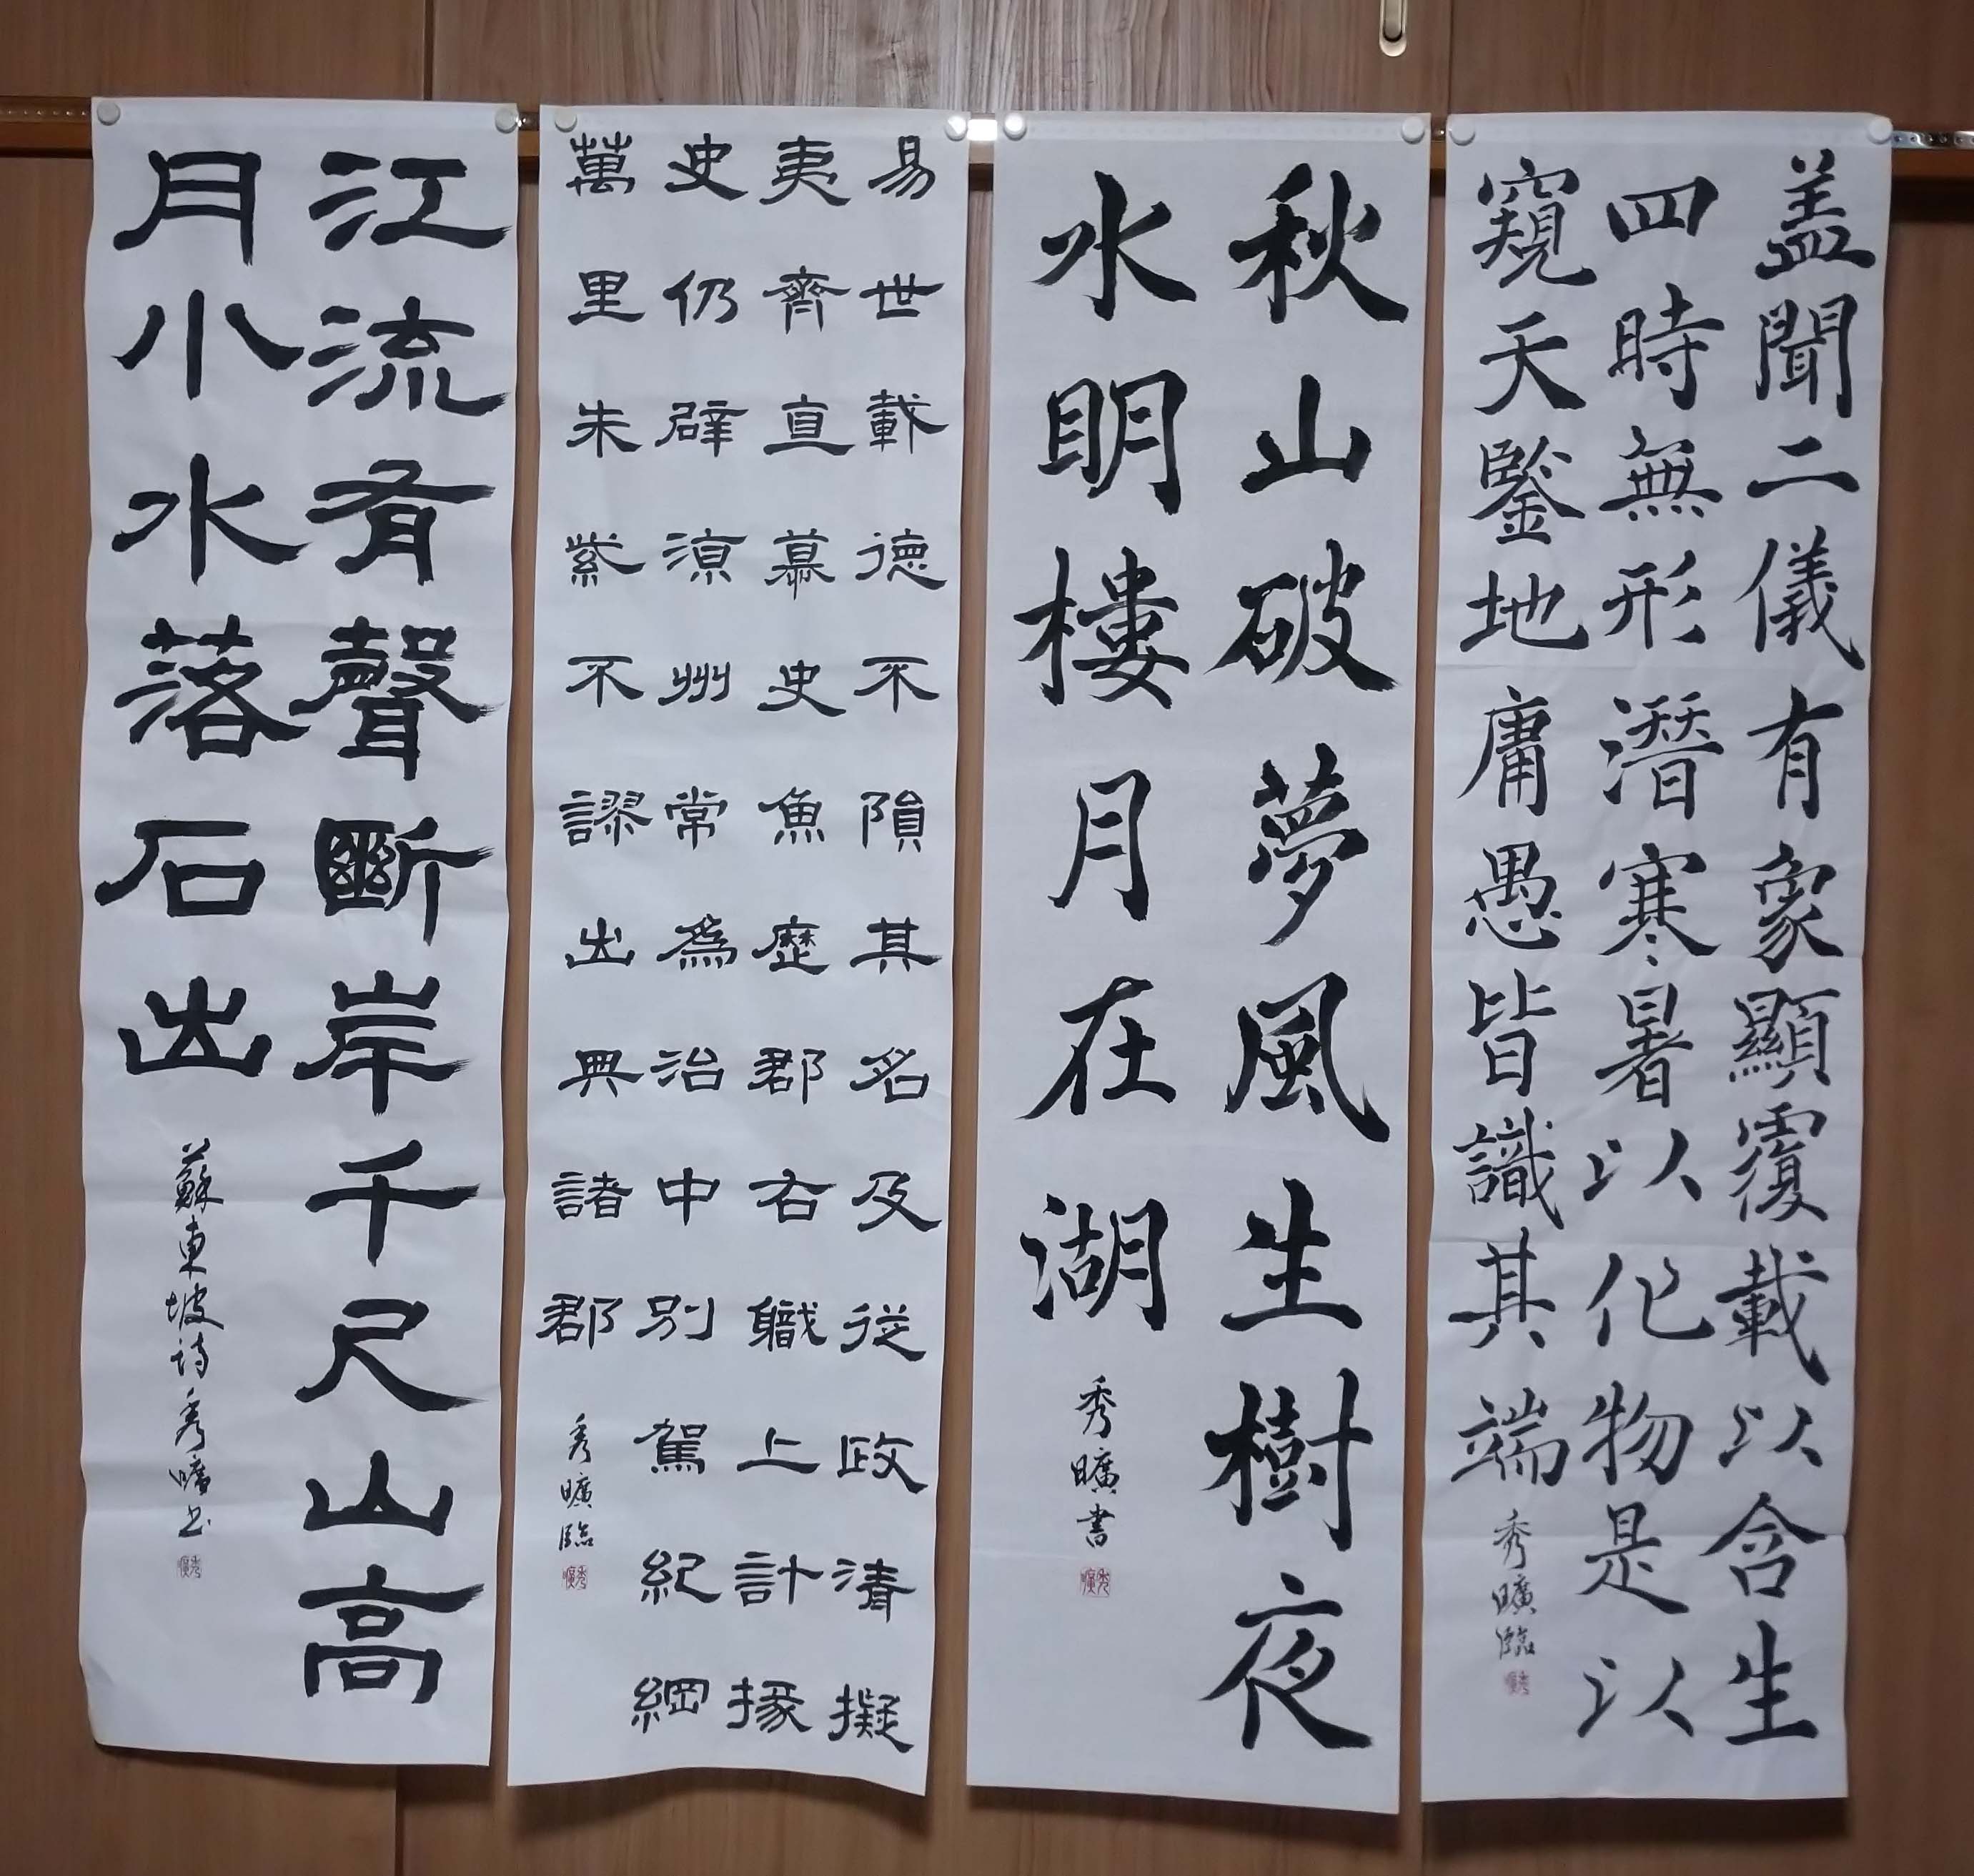 盖聞二儀有象顯覆載以含生
四時無形潛寒暑以化物是以
窺天鑒地庸愚皆識其端
秀曠臨
秋山破夢風生樹夜
水明樓月在湖
秀曠書
易世載德不隕其名及從政清擬
夷齊直慕史魚歷郡右職上計掾
史仍辟涼州常為治中別駕紀綱
萬里朱紫不謬出典諸郡
秀曠臨
江流有聲斷岸千尺山高
月小水落石出
蘇東坡詩秀曠书